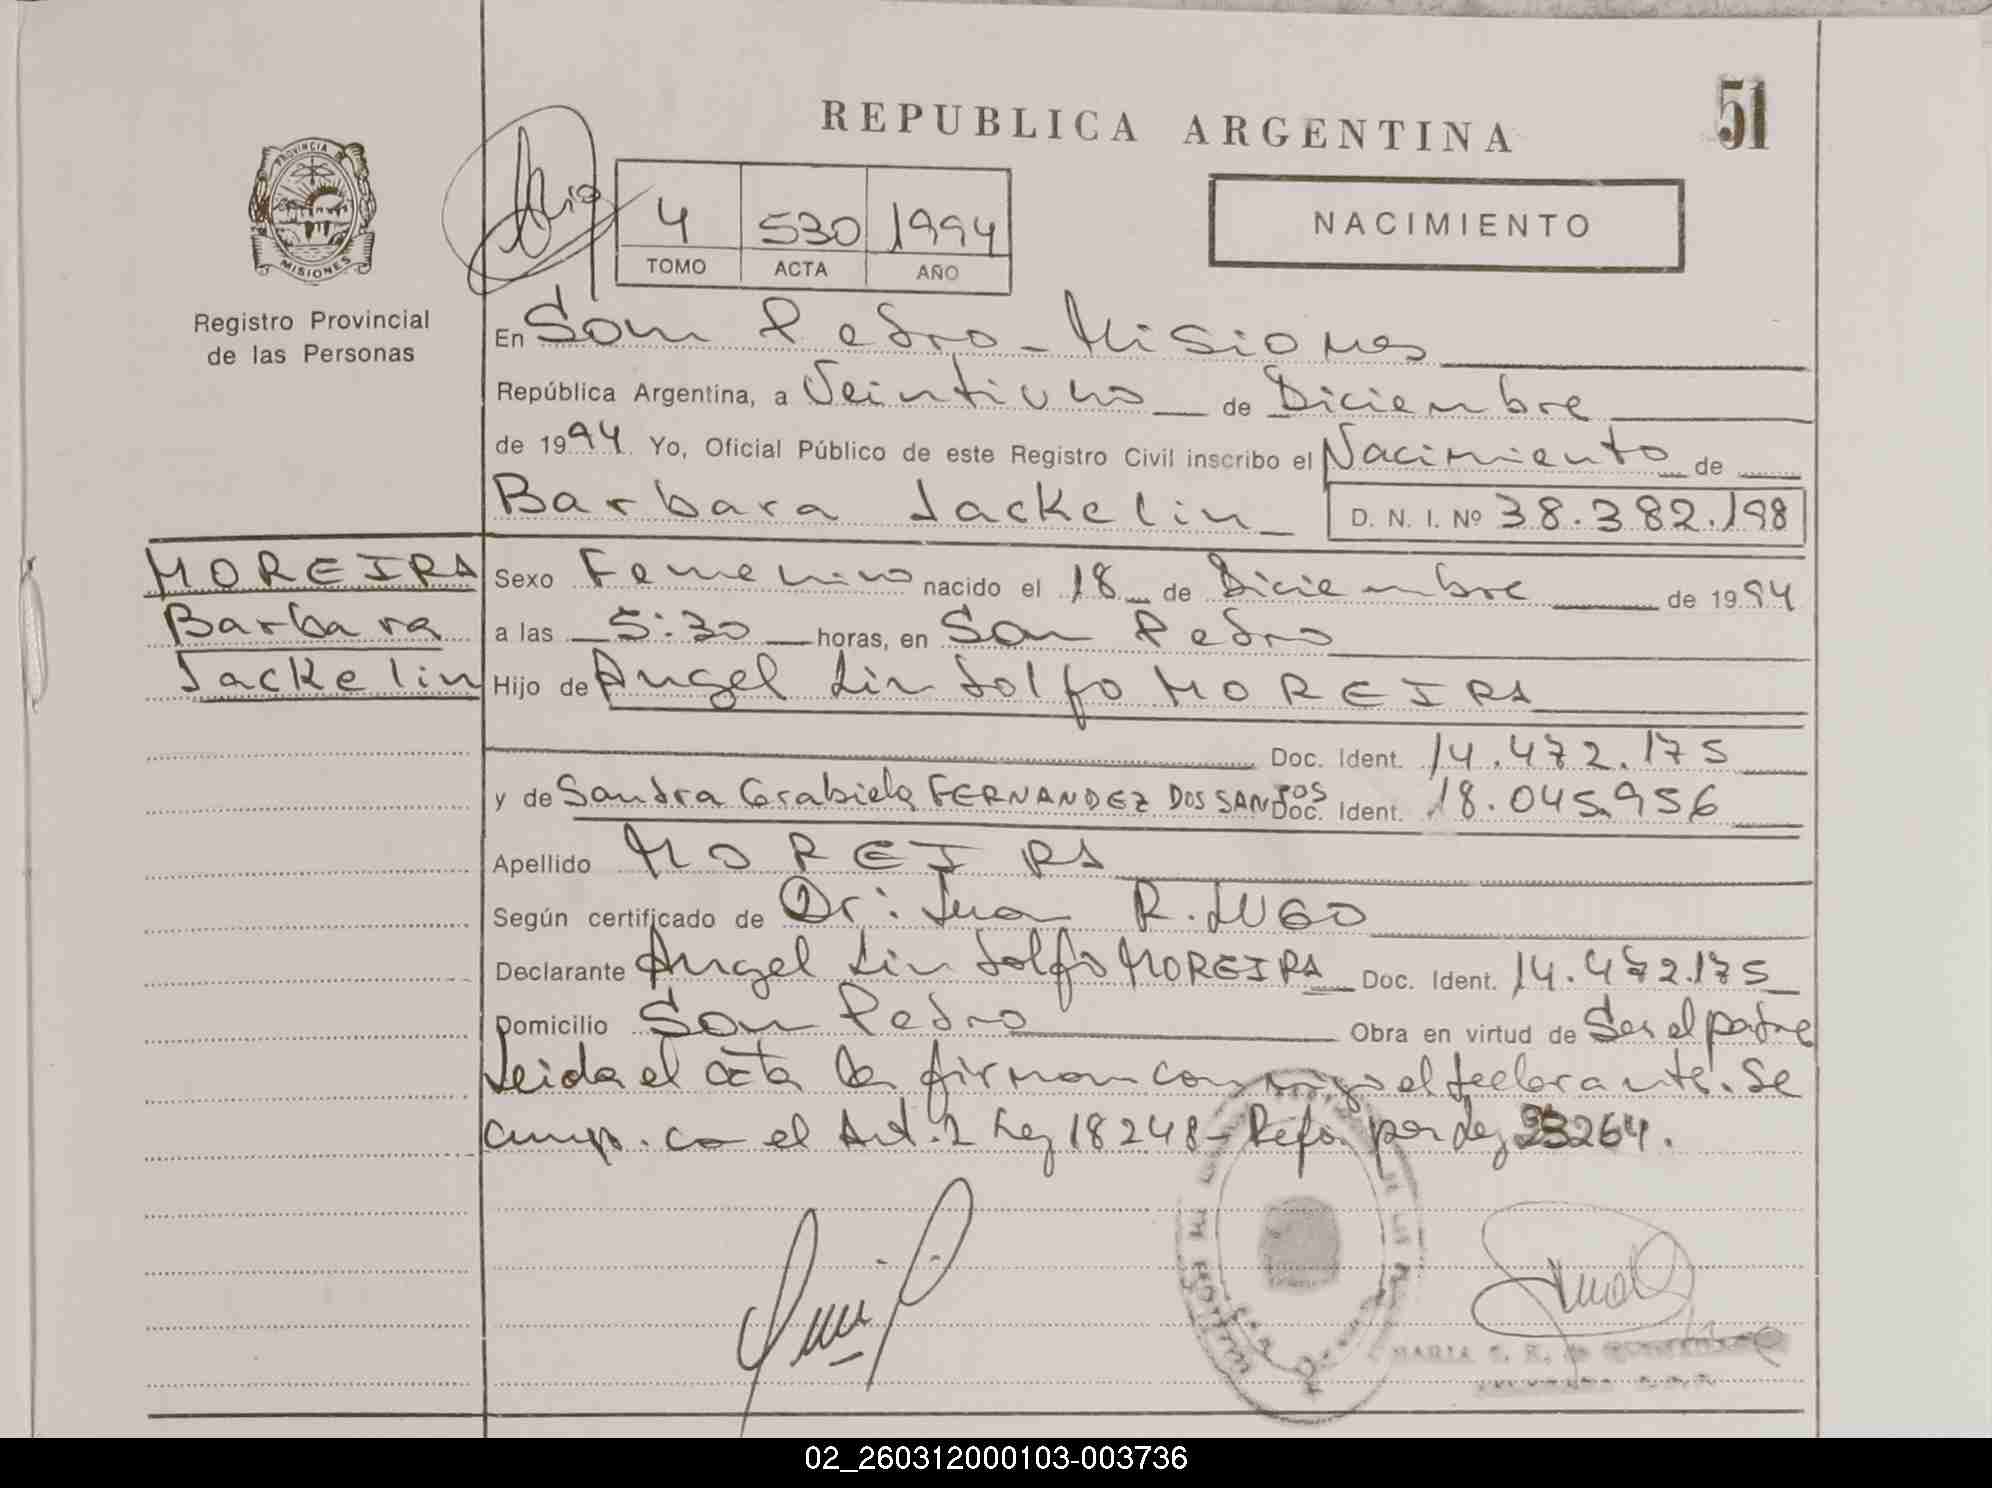 51
REPUBLICA ARGENTINA
NACIMIENTO
PROVINCIA DE
MISIONES
Registro Provincial
de las Personas
4 530 1994
TOMO ACTA AÑO
En San Pedro - Misiones
República Argentina, a Veintiuno de Diciembre
de 1994 Yo, Oficial Público de este Registro Civil inscribo el Nacimiento de
Barbara Jackelin D. N. I. Nº 38.382.198
MOREIRA
Barbara
Jackelin
Sexo Femenino nacido el 18 de Diciembre de 1994
a las 5:30 horas, en San Pedro
Hijo de Angel Lindolfo MOREIRA
Doc. Ident. 14.472.175
y de Sandra Grabiela FERNANDEZ DOS SANTOS Doc. Ident. 18.045.956
Apellido MOREIRA
Según certificado de Dr: Juan R. LUGO
Declarante Angel Lindolfo MOREIRA Doc. Ident. 14.472.175
Domicilio San Pedro Obra en virtud de Ser el padre
Leida el acta la firman conmigo el declarante. Se
cump. con el Art. 2 Ley 18248 - Refor. por Ley 23264.
MARIA
02_260312000103-003736